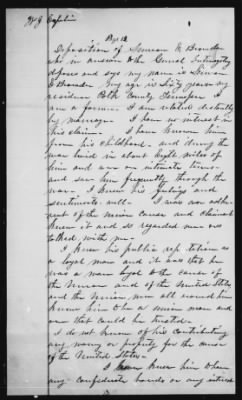 Pge 12
Deposition of Simeon E Browder
who in answer to the General Interrogatory
deposes and says my name is Simeon
E Browder. My age is Sixty years my
residence Polk County Tennessee. I
am a farmer. I am related distantly
by marriage. I have no interest in
his claim. I have known him
from his childhood. and during the
war lived in about eight miles of
him and was on intimate terms
and saw him frequently through the
war. I knew his feelings and
sentiments well. I was an adhe-
rent of the Union Cause and Claimant
knew it and so regarded me
talked with me.
I knew his public reputation as
a loyal man and it was that he
was a man loyal to the cause of
the Union and of the United States
and the Union men all around him
knew him to be a union man and
one that could be trusted.
I do not know of his contributing
any money or property for the use
of the United States.
I never knew him to own
any Confederate bonds or any interest